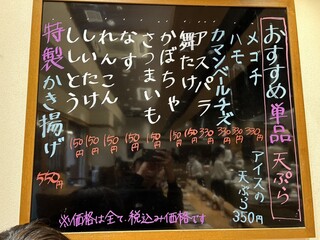 おすすめ単品天ぷら
メゴチ 330円
ハモ 330円
カマンベールチーズ 330円
アスパラ 150円
舞たけ 150円
かぼちゃ 150円
さつまいも 150円
なす 150円
れんこん 150円
しいたけ 150円
ししとう 150円
特製かき揚げ 550円
アイスの天ぷら 350円
※価格は全て税込み価格です